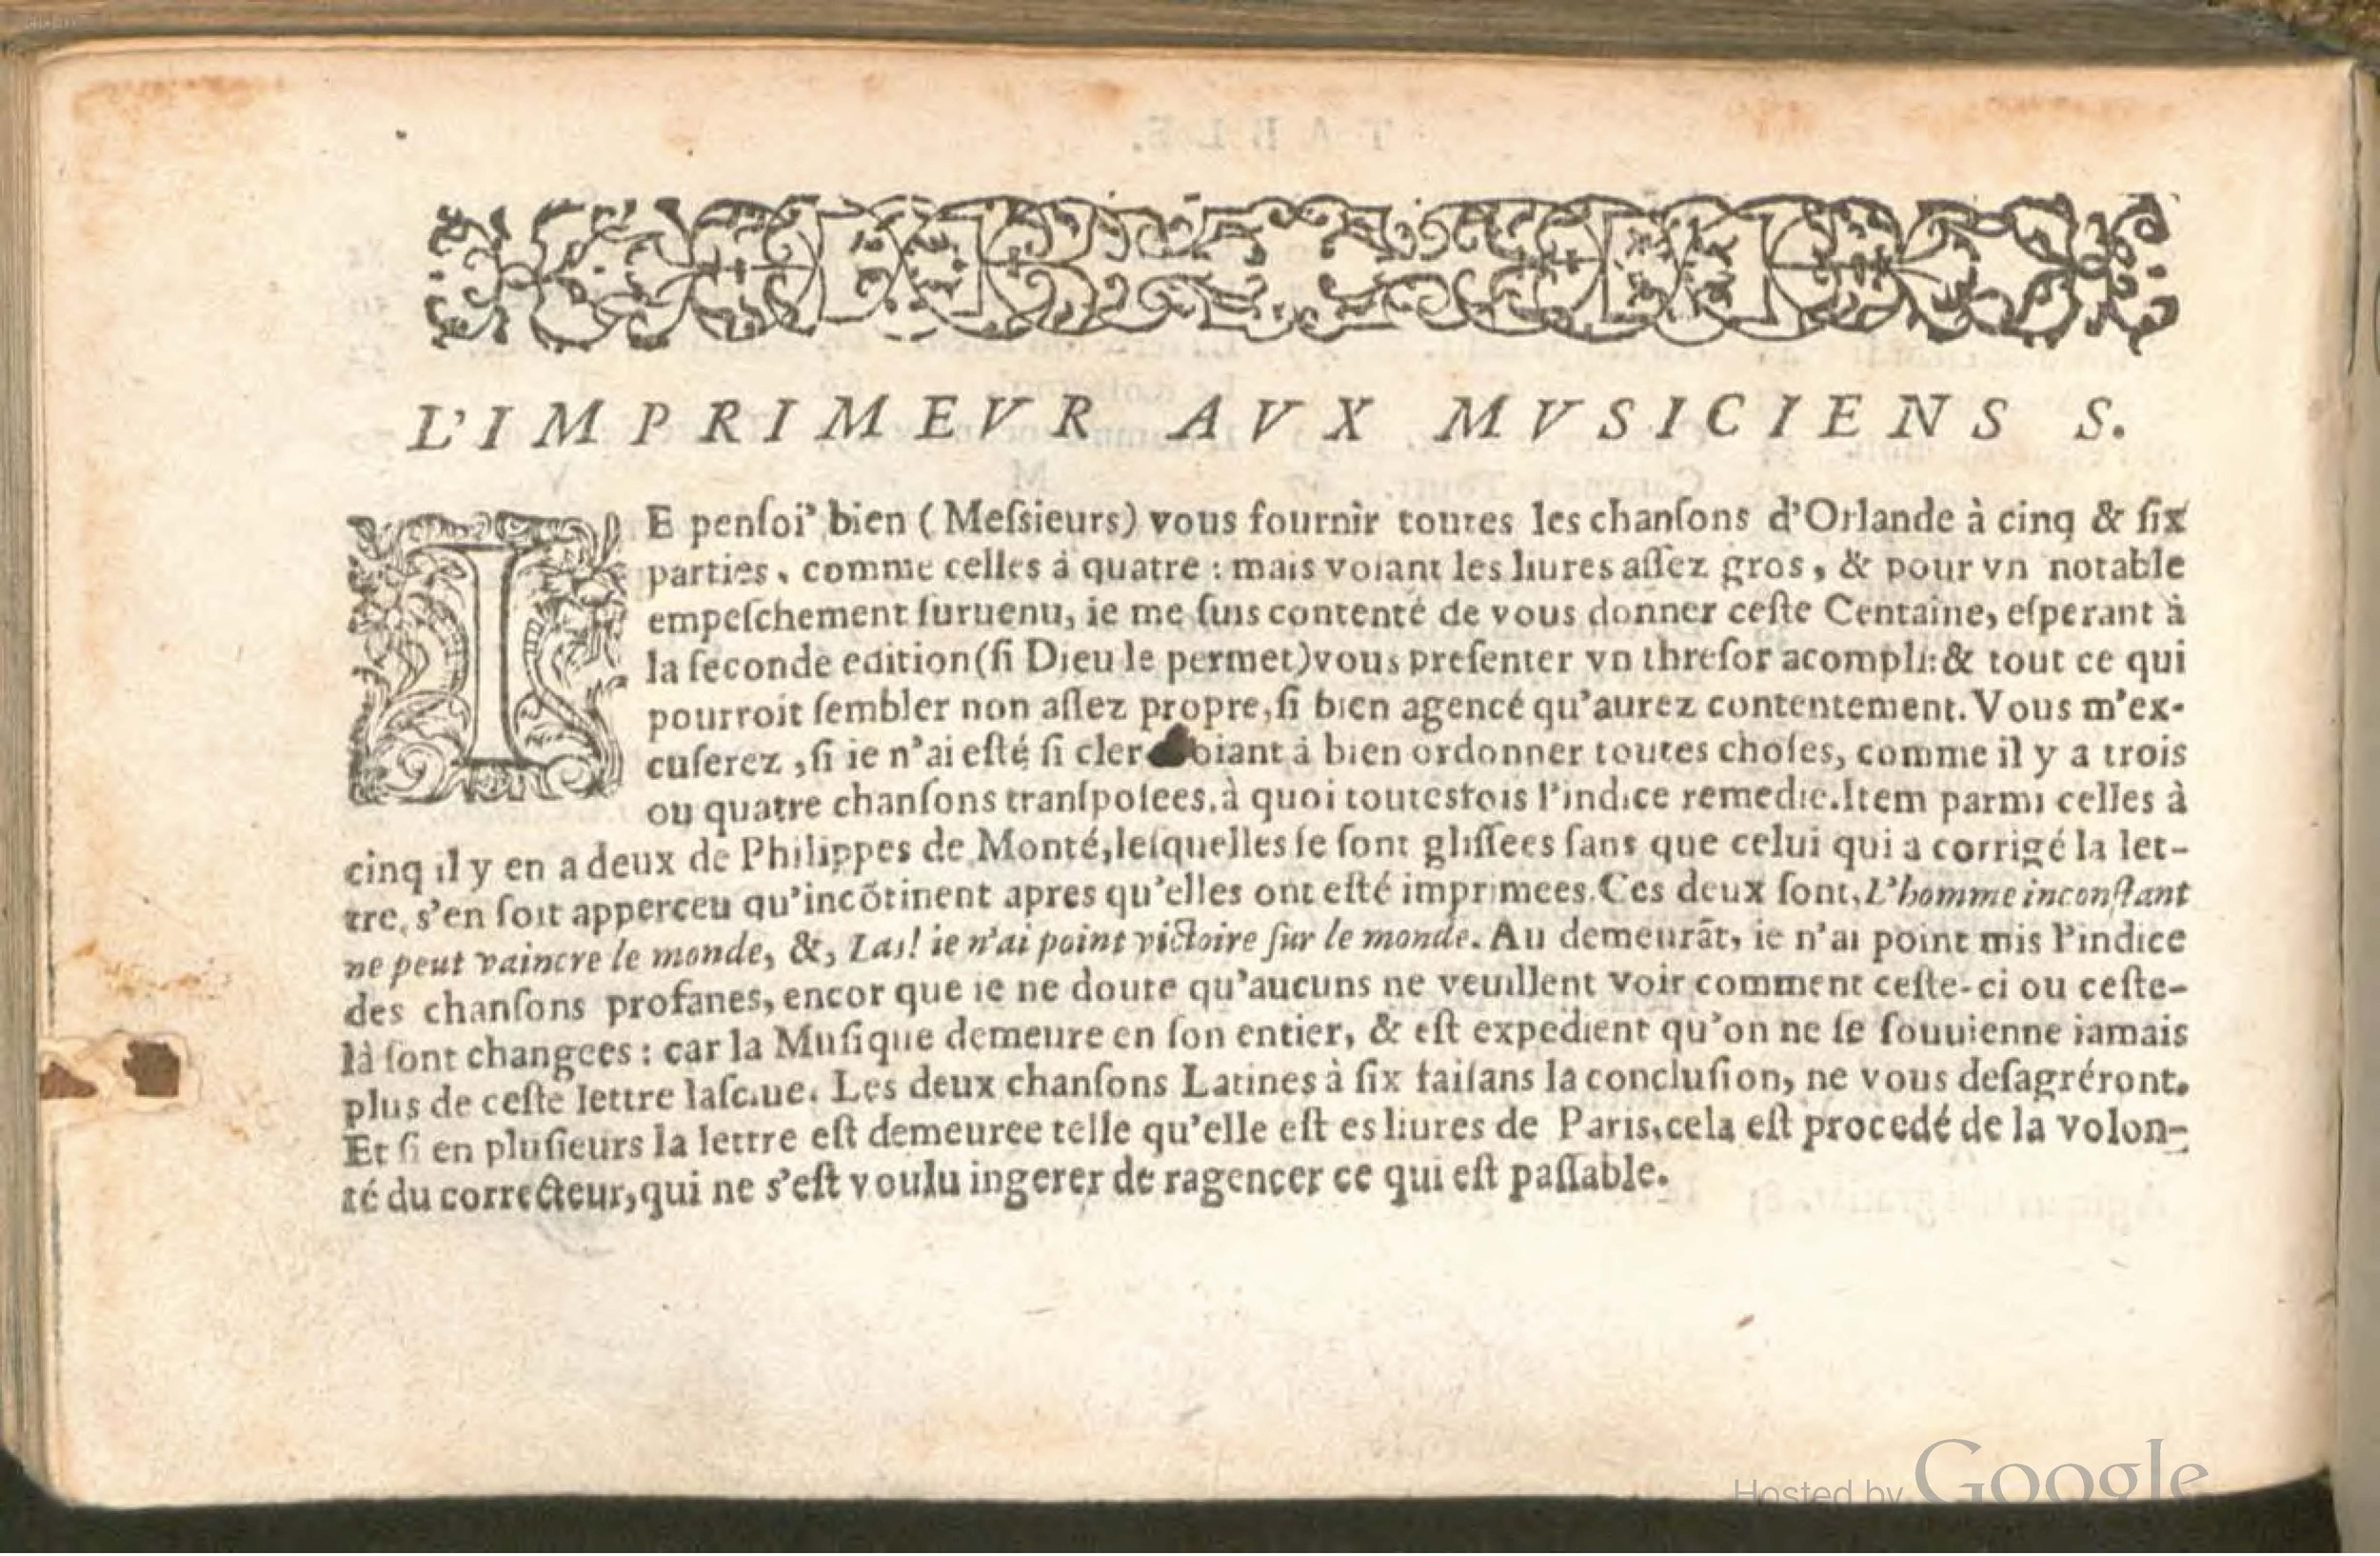 L'IMPRIMEVR AVX MVSICIENS S.
IE penſoi' bien (Meſsieurs) vous fournir toutes les chanſons d'Orlande à cinq & ſix
parties, comme celles à quatre : mais voiant les liures aſſez gros, & pour vn notable
empeſchement ſuruenu, ie me ſuis contenté de vous donner ceſte Centaine, eſperant à
la ſeconde edition(ſi Dieu le permet)vous preſenter vn threſor acompli:& tout ce qui
pourroit ſembler non aſſez propre,ſi bien agencé qu'aurez contentement. Vous m'ex-
cuſerez ,ſi ie n'ai eſté ſi cler oiant à bien ordonner toutes choſes, comme il y a trois
ou quatre chanſons tranſpoſees,à quoi toutesfois l'indice remedie.Item parmi celles à
cinq il y en a deux de Philippes de Monté,leſquelles ſe ſont gliſſees ſans que celui qui a corrigé la let-
tre, s'en ſoit apperceu qu'incõtinent apres qu'elles ont eſté imprimees.Ces deux ſont,L'homme inconſtant
ne peut vaincre le monde, &, Las! ie n'ai point victoire ſur le monde. Au demeurãt, ie n'ai point mis l'indice
des chanſons profanes, encor que ie ne doute qu'aucuns ne veuillent voir comment ceſte-ci ou ceſte-
là ſont changees : car la Muſique demeure en ſon entier, & eſt expedient qu'on ne ſe ſouuienne iamais
plus de ceſte lettre laſciue. Les deux chanſons Latines à ſix faiſans la concluſion, ne vous deſagréront.
Et ſi en pluſieurs la lettre eſt demeuree telle qu'elle eſt es liures de Paris,cela eſt procedé de la volon-
té du correcteur,qui ne s'eſt voulu ingerer de ragencer ce qui eſt paſſable.
Hosted by Google